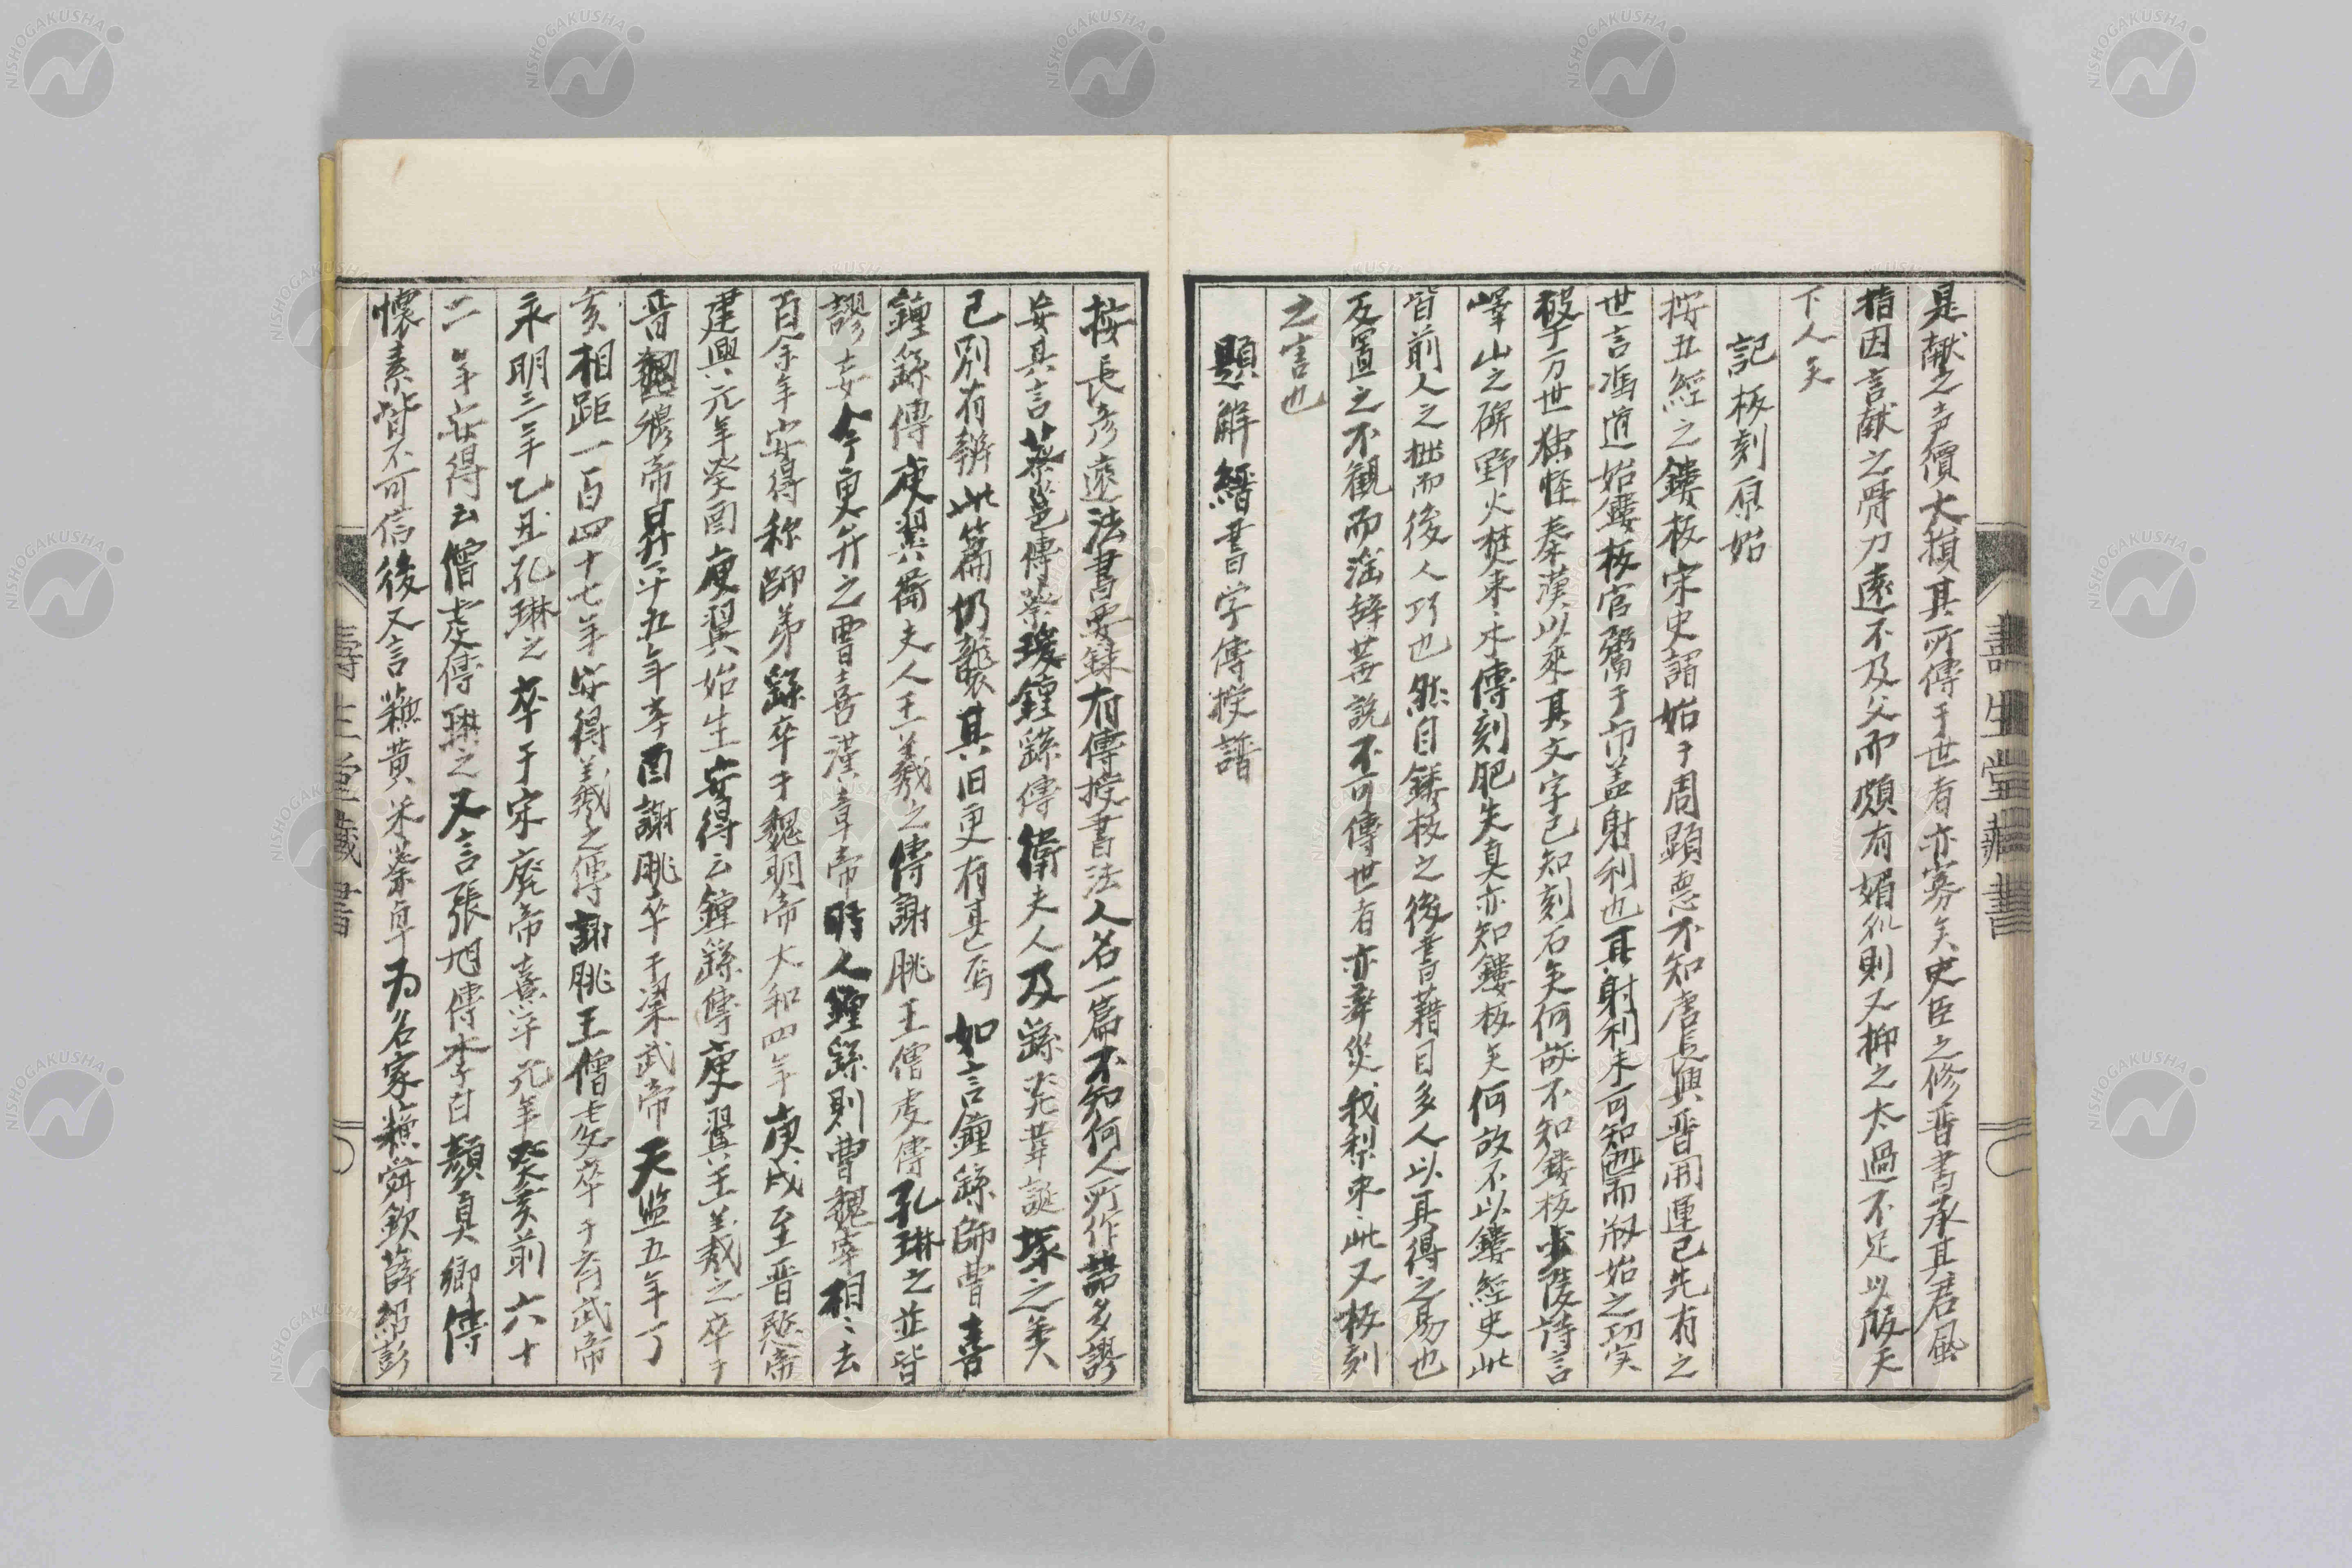 是献之声價大損其所傳于世者亦寡矣史臣之修晋書承其君風
指因言献之骨力遠不及父而頗有媚則又抑之太過不足以服天
下人矣
記板刻原始
按五經之鏤板宋史謂始于周顕悳不知唐長興晋開運已先有之
世言馮道始鏤板官鬻于市盖射利也其射利未可知而剏始之功実
被于万世独怪秦漢以來其文字已知刻石矣何故不知鏤板少陵詩言
嶧山之碑野火焚棗木傳刻肥失真亦知鏤板矣何故不以鏤經史此
皆前人之拙而後人巧也然自鏤板之後書藉日多人以其得之易也
反置之不観而淫辞芜説不可傳世者亦群災我梨棗此又板刻
之害也
題解縉書字傳授譜
按張彦遠法書要録有傳授書法人名一篇不知何人所作語多謬
妄其言蔡邕傳蔡琰鍾繇傳衛夫人及繇発韋誕塚之類
已別有辨此篇仍襲其旧更有甚焉如言鍾繇師曹喜
鍾繇傳庾翼衛夫人王羲之傳謝朓王僧虔傳孔琳之並皆
謬妄今更弁之曹喜漢章帝時人鍾繇則曹魏宰相相去
百余年安得称師弟繇卒于魏明帝大和四年庚戌至晋愍帝
建興元年癸酉庾翼始生安得云鍾繇傳庾翼王羲之卒于
晋穆帝昇平五年辛酉謝朓卒于梁武帝天监五年丁
亥相距一百四十七年安得羲之傳謝朓王僧虔卒于斉武帝
永明三年乙丑孔琳之卒于宋廃帝熹平元年癸亥前六十
二年安得云僧虔傳琳之又言張旭傳李白顏真卿傳
懷素皆不可信後又言蘓黄米蔡卓为名家蘓舜欽薛紹彭
壽生堂藏書
壽生堂藏書